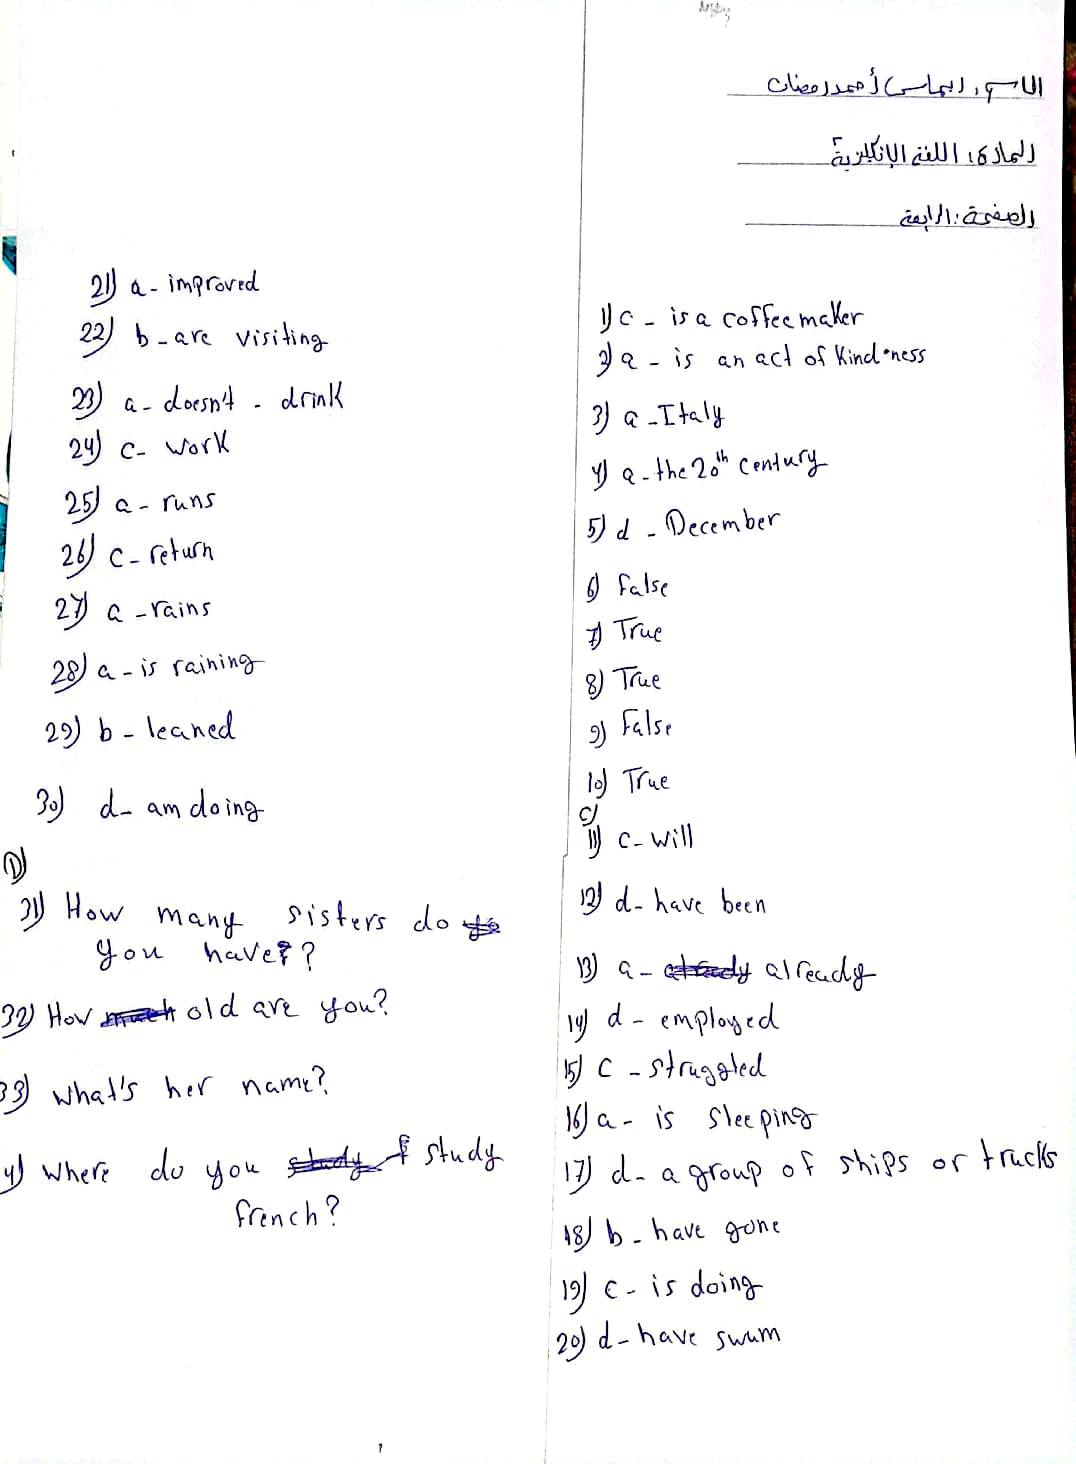 الاسم: ريماس أحمد رمضان
المادة: اللغة الإنكليزية
الصفحة: الرابعة
1) c - is a coffee maker
2) a - is an act of kindness
3) a - Italy
4) a - the 20th century
5) d - December
6) False
7) True
8) True
9) False
10) True
C)
11) c - will
12) d - have been
13) a - already
14) d - employed
15) c - struggled
16) a - is sleeping
17) d - a group of ships or trucks
18) b - have gone
19) c - is doing
20) d - have swum
21) a - improved
22) b - are visiting
23) a - doesn't - drink
24) c - work
25) a - runs
26) c - return
27) a - rains
28) a - is raining
29) b - leaned
30) d - am doing
D)
31) How many sisters do
you have?
32) How old are you?
33) what's her name?
4) where do you study
french?